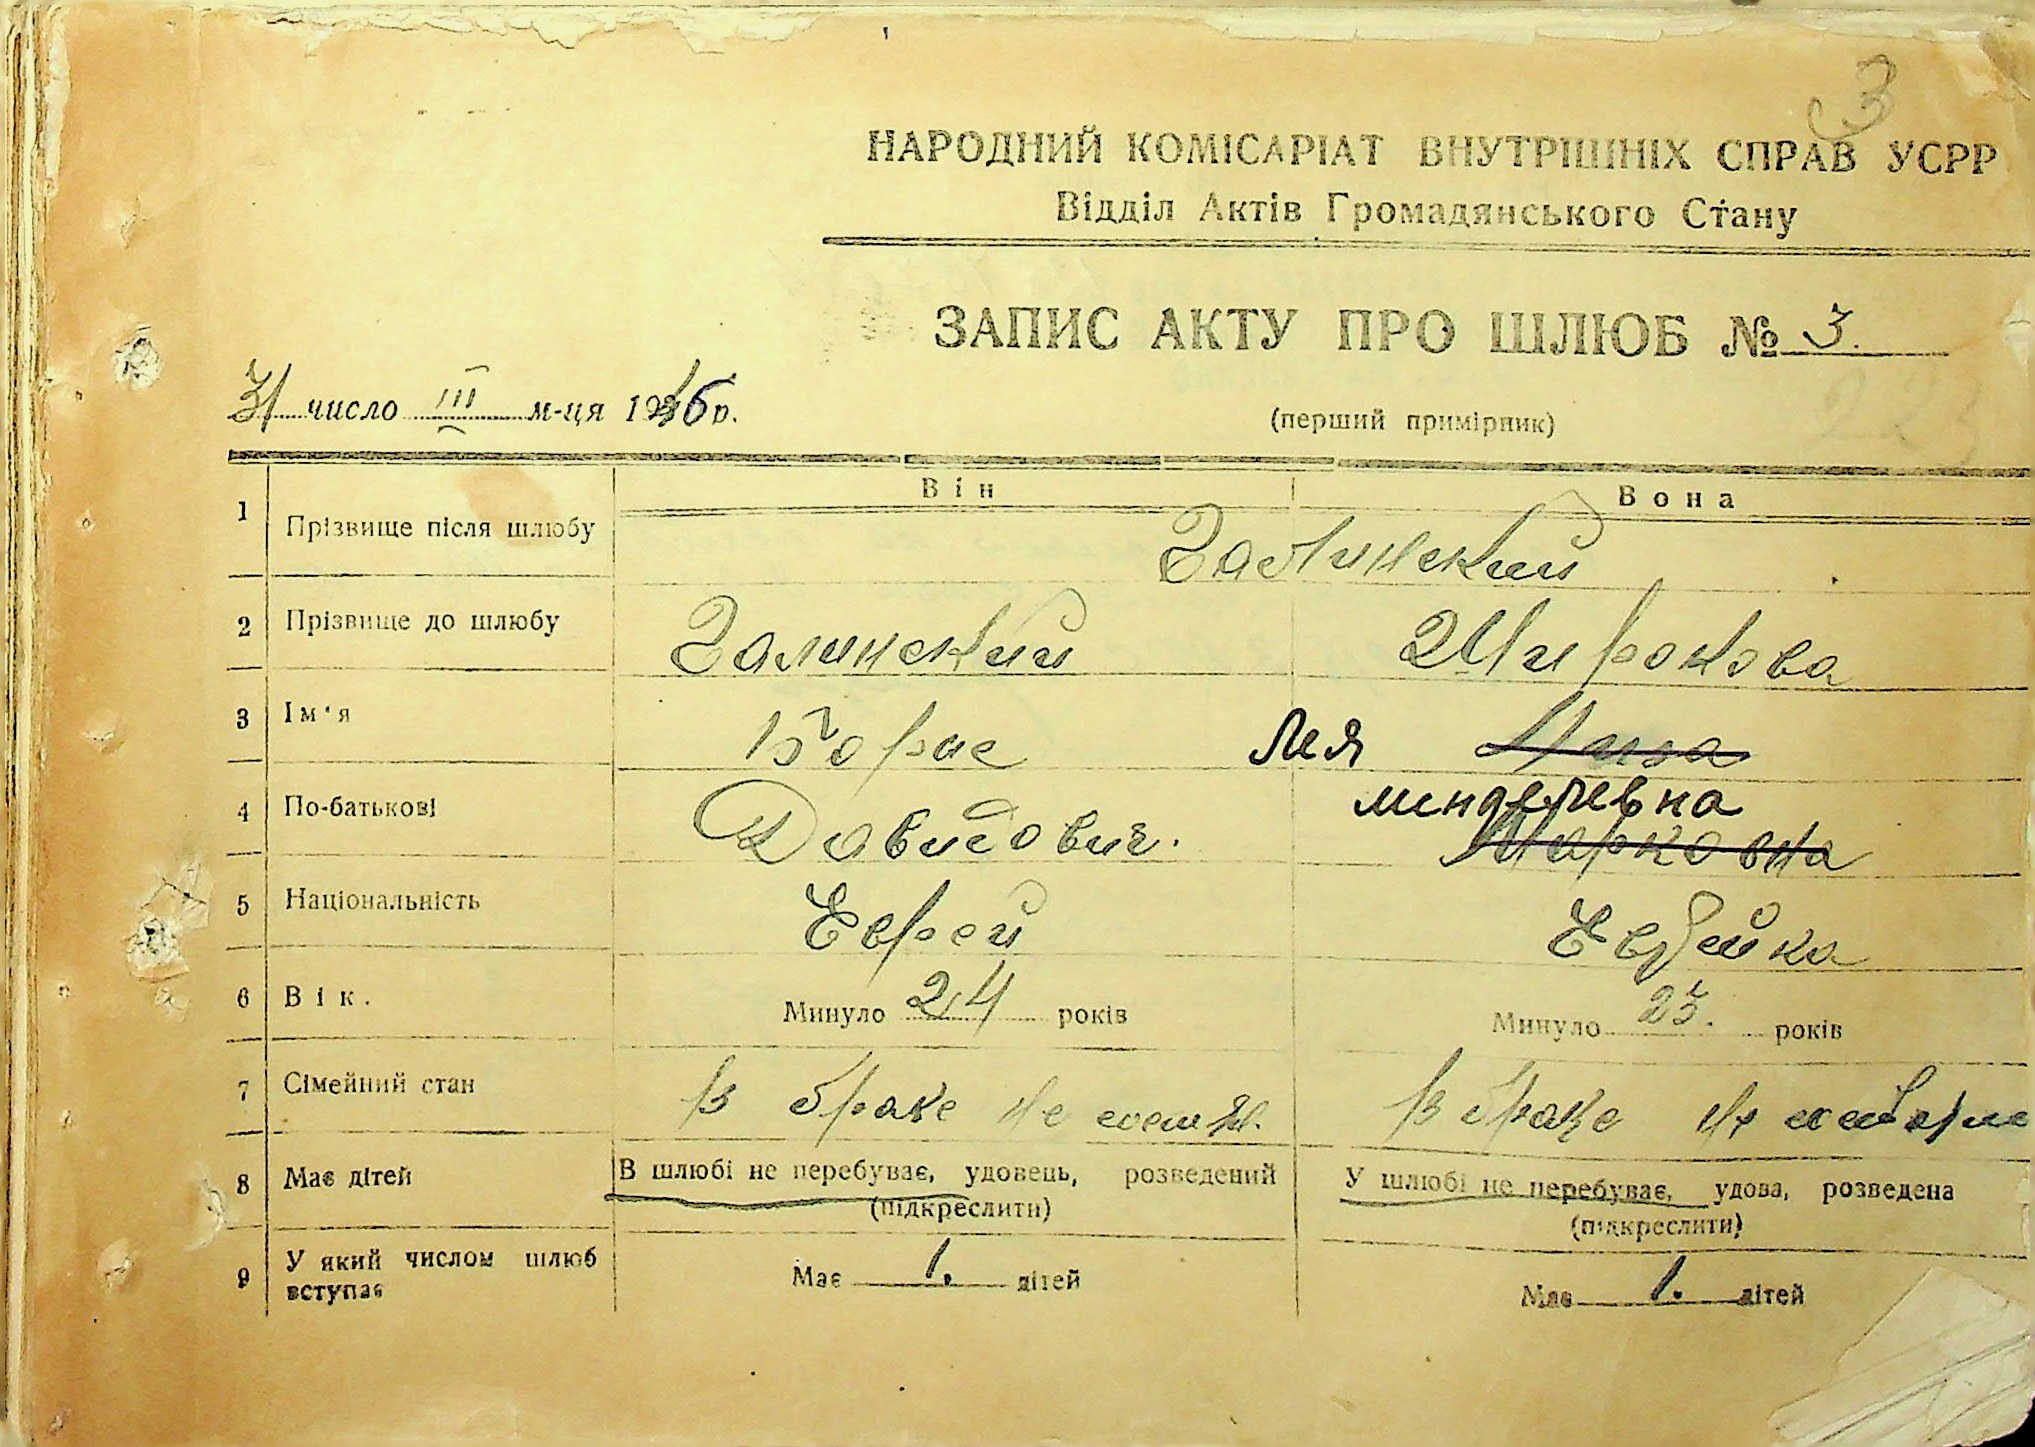 3
НАРОДНИЙ КОМІСАРІАТ ВНУТРІШНІХ СПРАВ УСРР
Відділ Актів Громадянського Стану
ЗАПИС АКТУ ПРО ШЛЮБ № 3.
31 число III м-ця 1946 р.
(перший примірник)
Він Вона
1 Прізвище після шлюбу Галинский
2 Прізвище до шлюбу Галинский Широкова
3 Ім'я Борис Лея
4 По-батькові Давидович. менделевна
Марковна
5 Національність Еврей Еврейка
6 Вік. Минуло 24 років Минуло 23. років
7 Сімейний стан В браке не В браке не
8 Має дітей В шлюбі не перебуває, удовець, розведений У шлюбі не перебуває, удова, розведена
(підкреслити) (підкреслити)
9 У який числом шлюб вступає Має 1. дітей Має 1. дітей